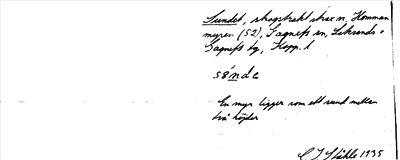 Sundet, skogstrakt strax n. Homman
myren (52), Sagnefs en, Lekvands o
Sagnefs by, Kopp. l
sønde
En myr ligger som ett sund mellan
två höjder
C I Ståhle 1935